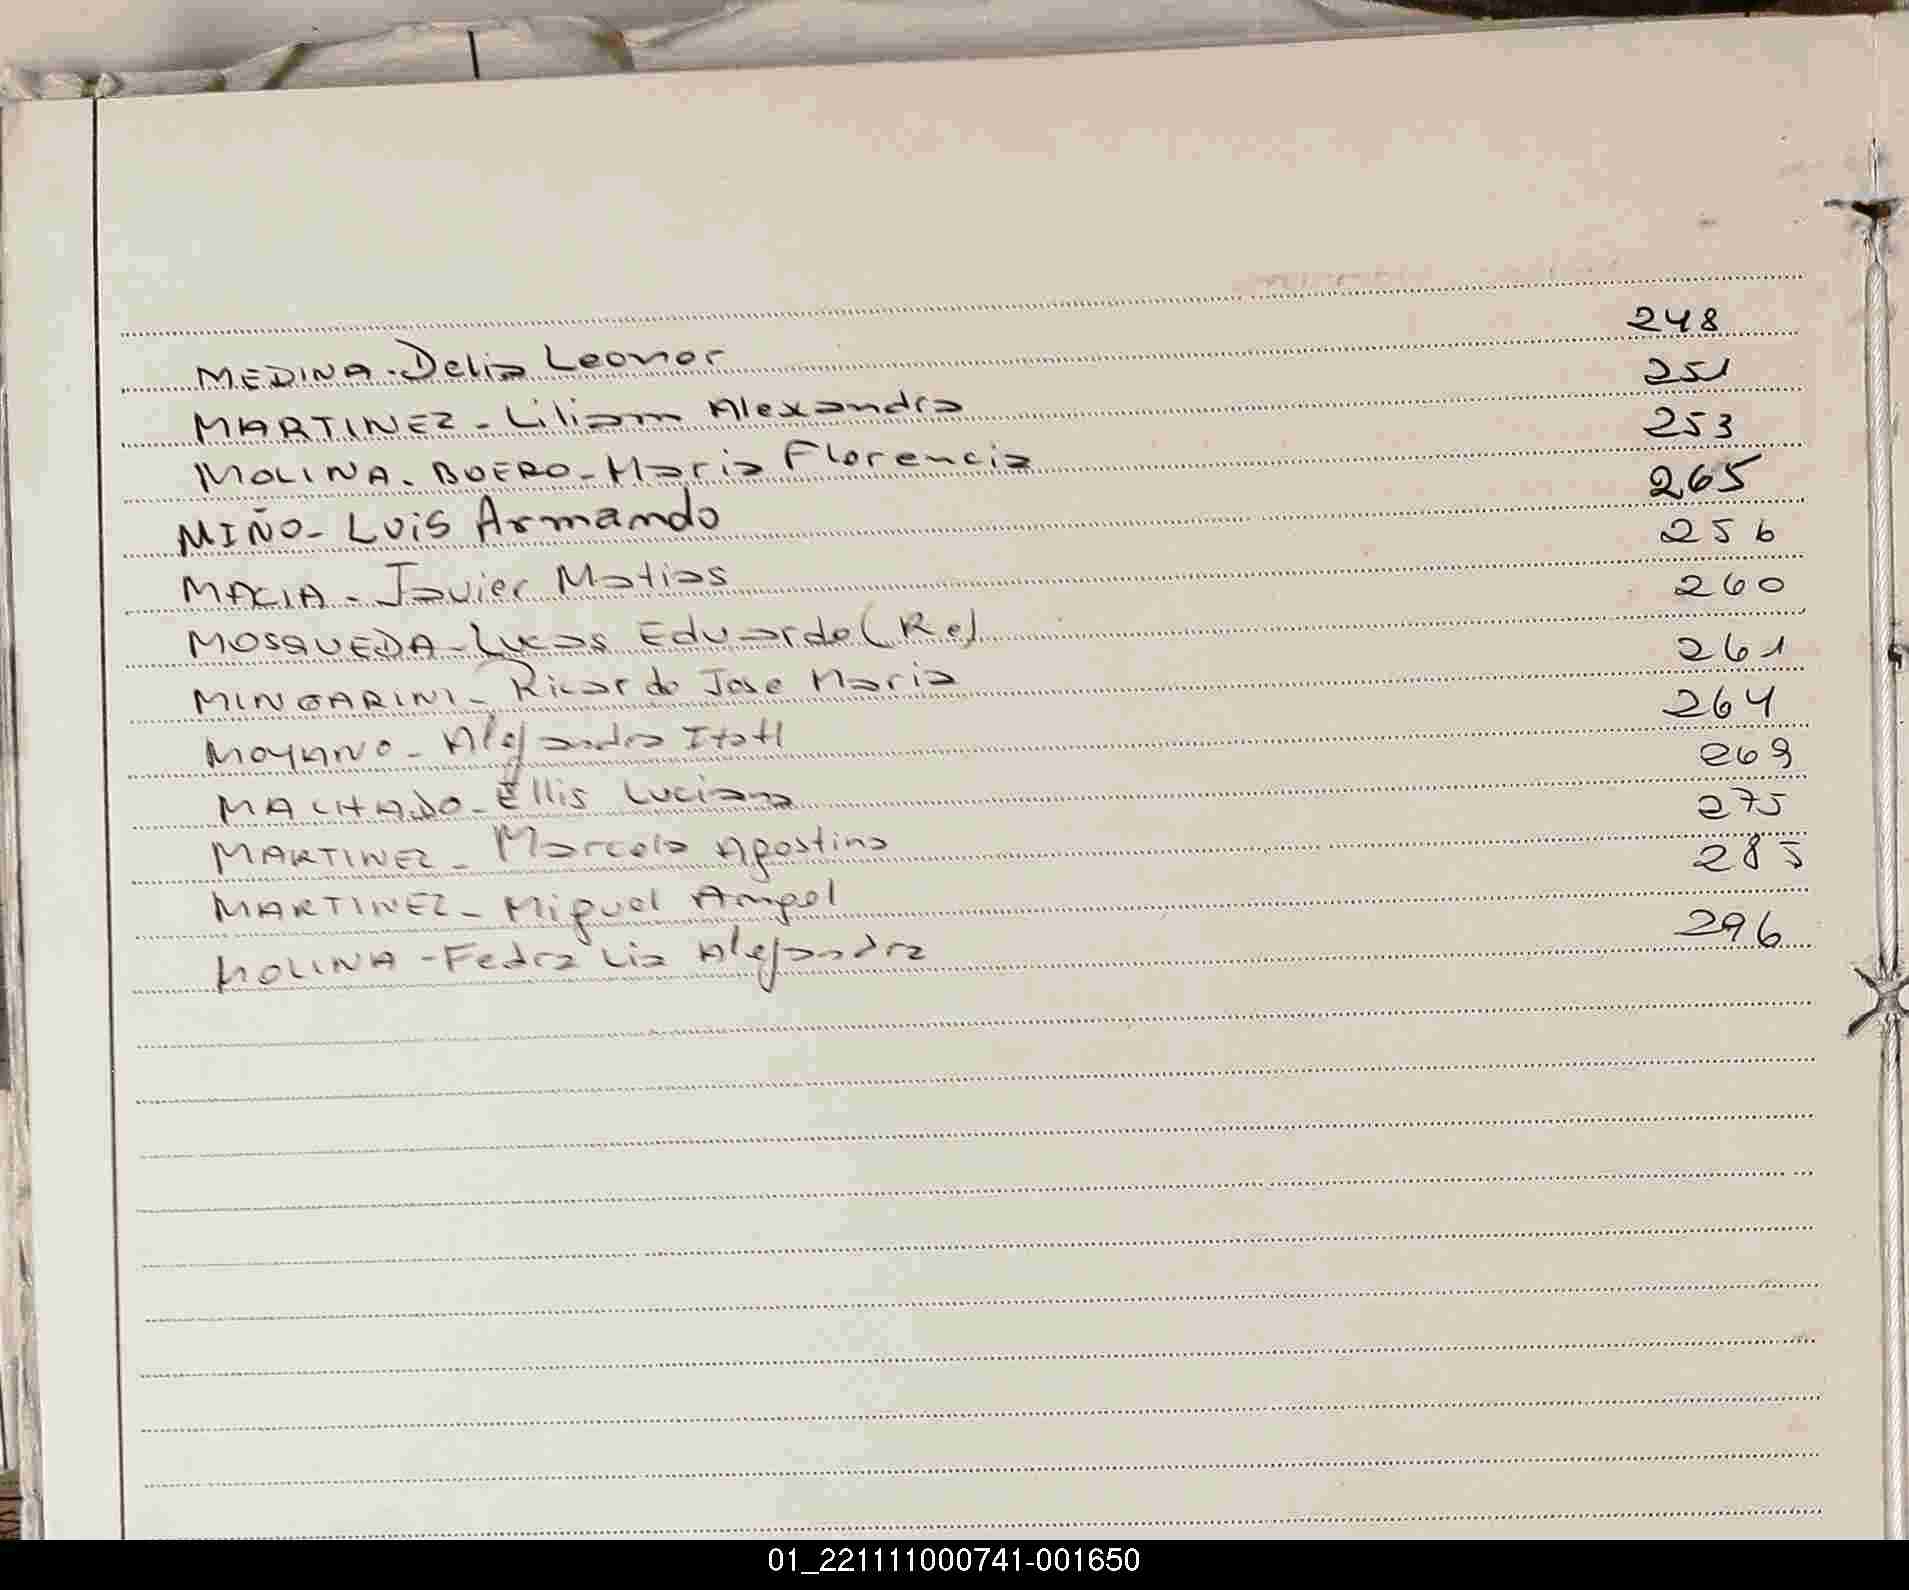 MEDINA - Delia Leonor 248
MARTINEZ - Liliam Alexandra 251
MOLINA - BOERO - Maria Florencia 253
MIÑO - Luis Armando 265
MACIA - Javier Matias 256
MOSQUEDA - Lucas Eduardo (Re) 260
MINGARINI - Ricardo Jose Maria 261
MOYANO - Alejandra Itatí 264
MACHADO - Ellis Luciana 269
MARTINEZ - Marcela Agostina 275
MARTINEZ - Miguel Angel 285
MOLINA - Fedra Lia Alejandra 296
01_221111000741-001650